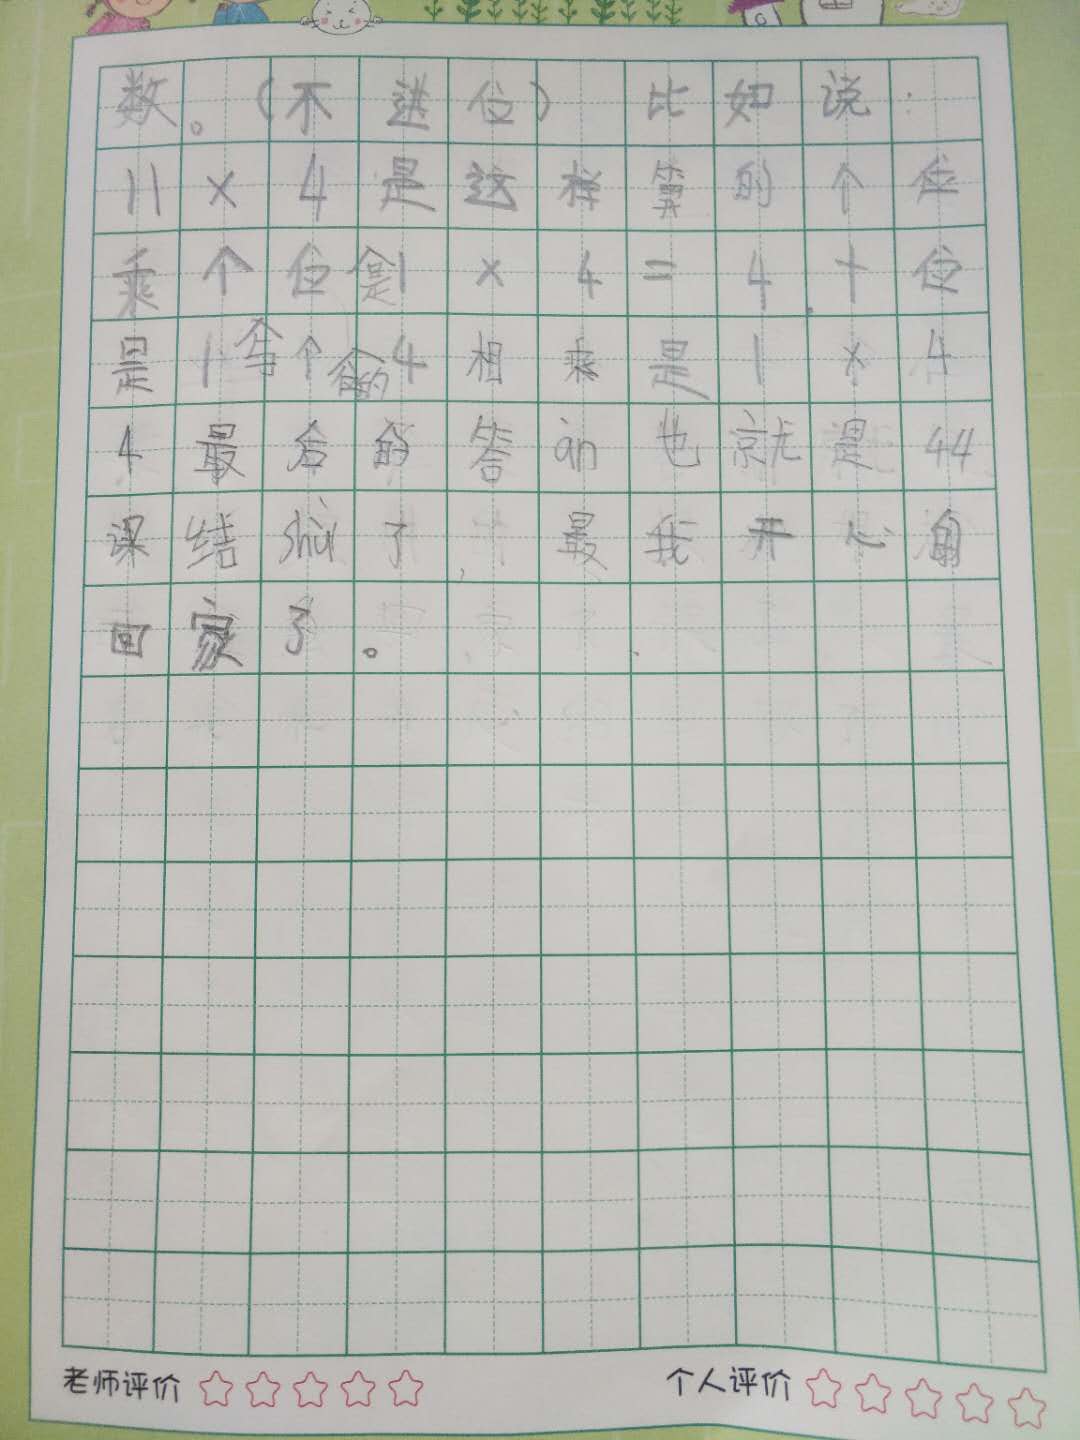 数。（不进位）比如说：
11×4是这样算的个位
乘个位是1×4=4.十位
是1与个位的4相乘是1×4
4最后的答àn也就是44
课结shù了，最我开心自
回家了。
老师评价 个人评价